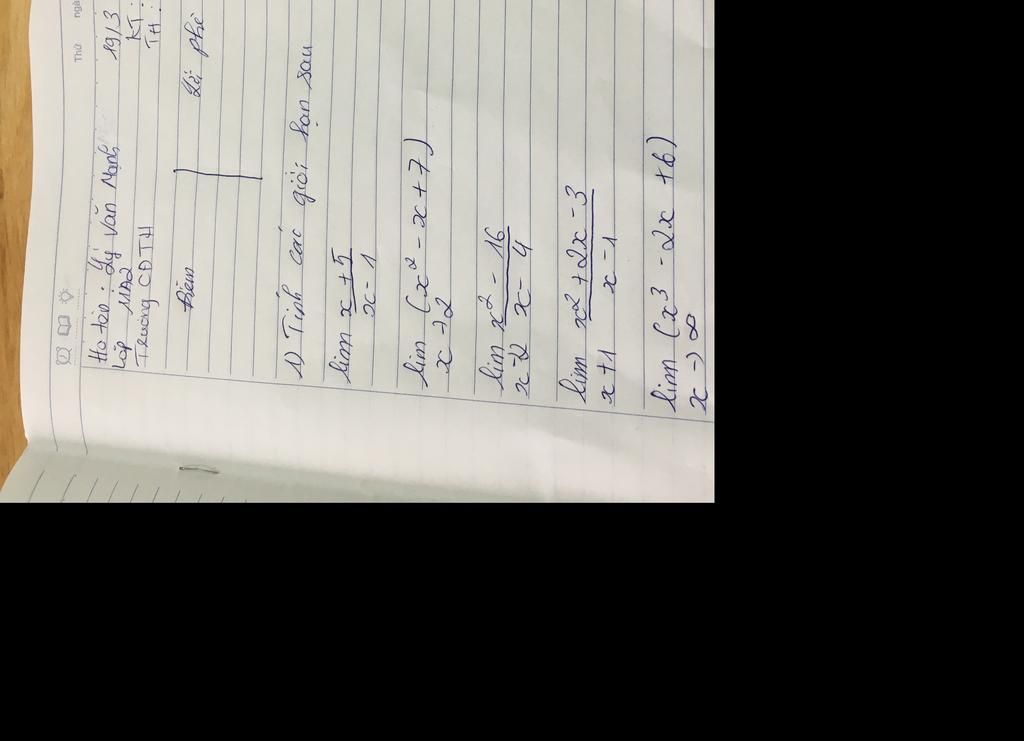 Thứ
ngà
Họ tên: Lý Văn Mạnh 19/3
Lớp MA2 KT:
Trường CĐTH TH:
Điểm Lời phê
1) Tính các giới hạn sau
lim x + 5
x - 1
lim (x² - x + 7)
x → 2
lim x² - 16
x → 2 x - 4
lim x² + 2x - 3
x + 1 x - 1
lim (x³ - 2x + 6)
x → ∞